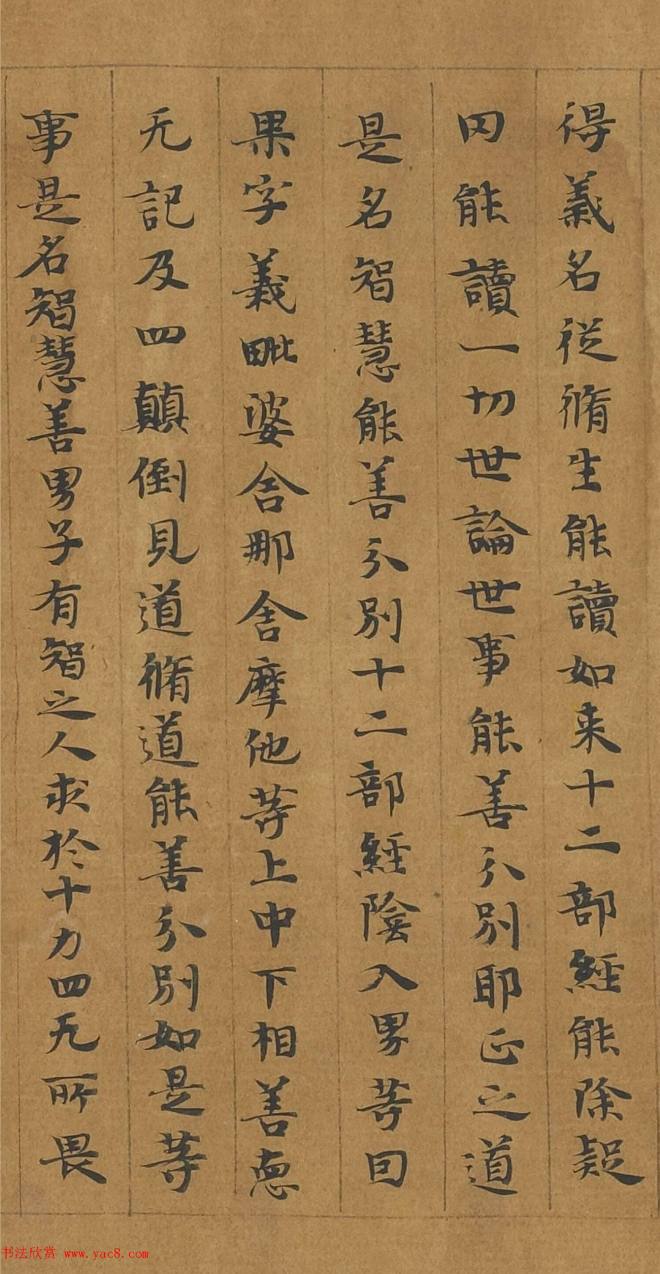 得義名從脩生能讀如来十二部經能除疑
网能讀一切世論世事能善分別耶正之道
是名智慧能善分別十二部經陰入界等因
果字義毗婆舍那舍摩他等上中下相善惡
无記及四顛倒見道脩道能善分別如是等
事是名智慧善男子有智之人求於十力四无所畏
书法欣赏 www.yac8.com